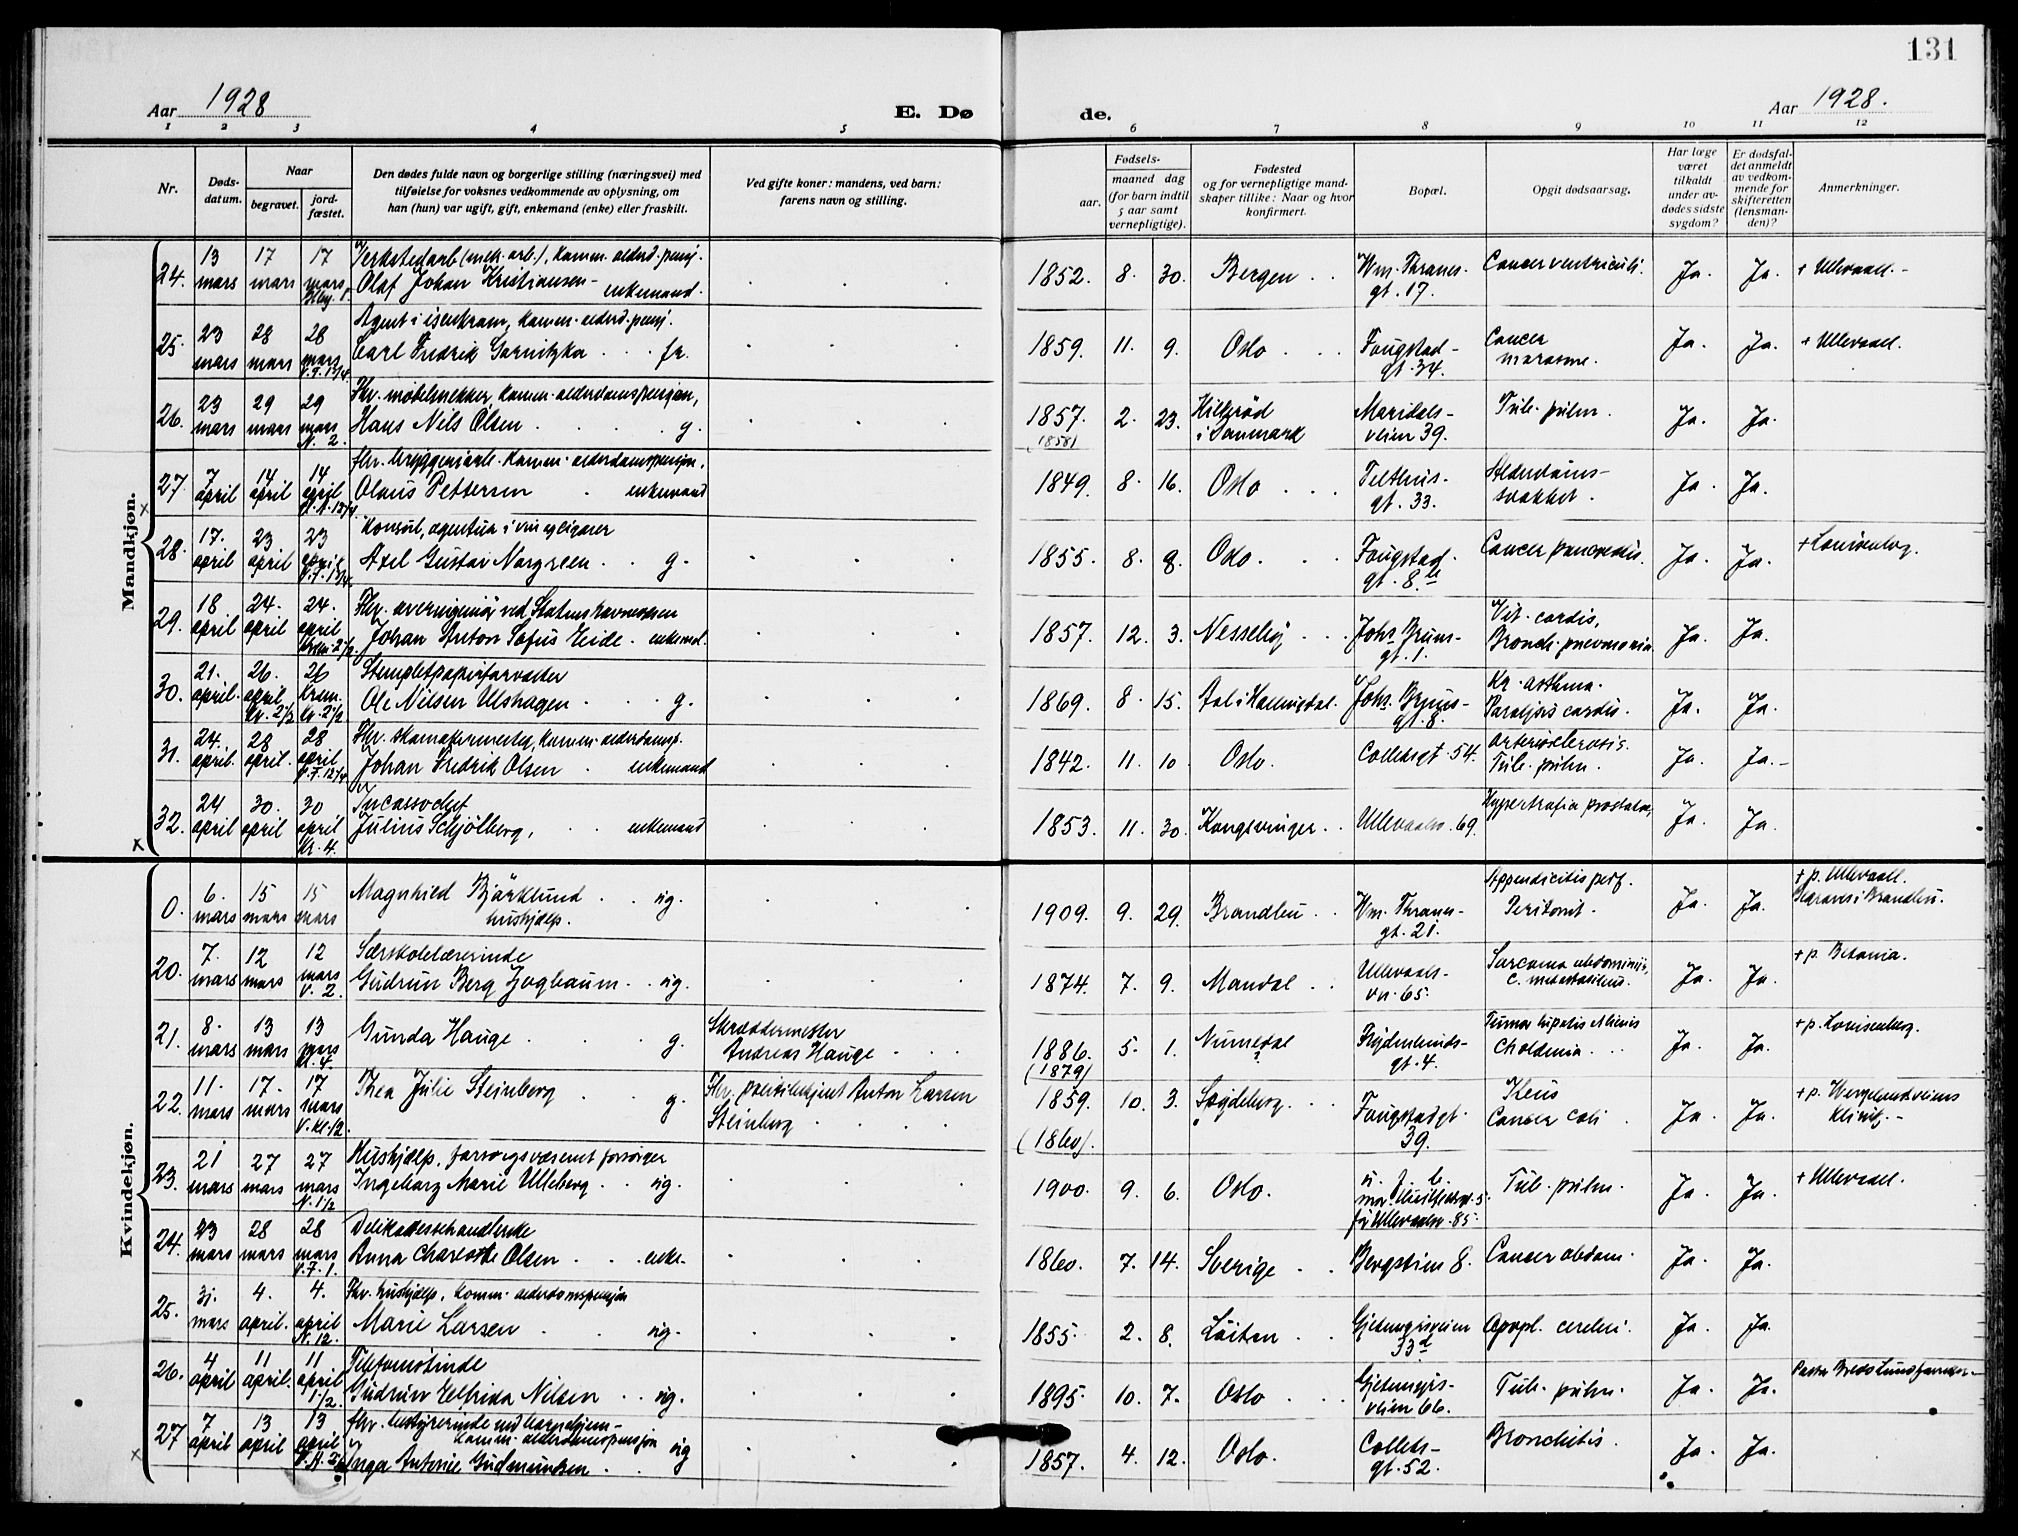 131
Aar 1928
E. Dø
de.
Aar 1928.
1 2 3 4 5 6 7 8 9 10 11 12
Nr.
Døds-
datum.
Naar
begravet.
jord-
fæstet.
Den dødes fulde navn og borgerlige stilling (næringsvei) med
tilføielse for voksnes vedkommende av oplysning, om
han (hun) var ugift, gift, enkemand (enke) eller fraskilt.
Ved gifte koner: mandens, ved barn:
farens navn og stilling.
Fødsels-
aar. maaned dag
(for barn indtil
5 aar samt
vernepligtige).
Fødested
og for vernepligtige mand-
skaper tillike: Naar og hvor
konfirmert.
Bopæl.
Opgit dødsaarsag.
Har læge
været
tilkaldt
under av-
dødes sidste
sygdom?
Er dødsfal-
det anmeldt
av vedkom-
mende for
skifteretten
(lensman-
den)?
Anmerkninger.
Mandkjøn.
24. 13 mars 17 mars 17 mars
Verkstedarb. (mek. arb.), komm. alderd. pensj.
Olaf Johan Kristiansen - enkemand.
1852. 8. 30. Bergen Wm. Thranes-
gt. 17. Cancer ventriculi. Ja. Ja. + Ullevaal.
25. 23 mars 28 mars 28 mars
Agent i isenkram, komm. alderd. pensj.
Carl Fredrik Garnitzka fr.
1859. 11. 9. Oslo Fougstad-
gt. 34. Cancer
marasme. Ja. Ja. + Ullevaal.
26. 23 mars 29 mars 29 mars N. 2.
Fhv. møbelsnekker, komm. alderdomspensjon,
Hans Nils Olsen g.
1857. (1858) 2. 23. Hillerød
i Danmark Maridals-
veien 39. Tub. pulm. Ja. Ja.
27. 7 april 14 april 14 april
fhv. bryggeriarb. komm. alderdomspensjon.
Olaus Pettersen enkemand
1849. 8. 16. Oslo Telthus-
gt. 33. Alderdoms-
svakhet. Ja. Ja.
28. 17. april 23 april 23 april
Konsul, agentur i vin og cigarer
Axel Gustav Norgreen g.
1855. 8. 8. Oslo. Fougstad-
gt. 8 b Cancer pancreatis. Ja. Ja. + Lovisenberg.
29. 18 april 24. april 24. april
Fhv. overingeniør ved Statens havnevesen
Johan Anton Sofus Eide - enkemd.
1857. 12. 3. Nesseby Johs. Bruns-
gt. 1. Vit. cordis,
Bronch. pneumonia. Ja. Ja.
30. 21. april. 26. april 26 Krem.
Stempletpapirforvalter
Ole Nilsen Ulshagen g.
1869. 8. 15. Aal i Hallingdal. Johs. Bruns-
gt. 8. Kr. asthma.
Paralysis cordis. Ja. Ja.
31. 24. april. 28 april. 28 april
Fhv. skomakermester, komm. alderdomsp.
Johan Fredrik Olsen enkemand
1842. 11. 10. Oslo. Colletsgt. 54. Arteriosclerosis.
Tub. pulm. Ja. Ja.
32. 24 april 30. april 30 april Kl. 4.
Incassochef
Julius Schjølberg, enkemand
1853. 11. 30. Kongsvinger Ullevaalsv. 69. Hypertrofia prostatae, Ja. Ja.
Kvindekjøn.
0. 6. mars 15 mars 15 mars
Magnhild Bjørklund ug.
hushjelp.
1909. 9. 29. Brandbu Wm. Thranes-
gt. 21. Appendicitis perf.
Peritonit. Ja. Ja. + p. Ullevaal.
Begraves i Brandbu.
20. 7. mars 12 mars 12 mars V. 2.
Særskolelærerinde
Gudrun Berg Zogbaum ug.
1874. 7. 9. Mandal Ullevaals-
vn. 65. Sarcoma abdominis,
c. metastasibus. Ja. Ja. + p. Betania.
21. 8. mars 13 mars 13 mars Kl. 4.
Gunda Hauge g.
Skræddermester
Andreas Hauge
1886. (1879) 5. 1. Numedal Frydenlunds-
gt. 4. Tumor hepatis
Cholæmia. Ja. Ja. + p. Lovisenberg.
22. 11. mars 17. mars 17 mars
Thea Julie Steinberg g.
Fhv. politibetjent Anton Larsen
Steinberg
1859. (1860). 10. 3. Fougstadgt.
39. Ileus
Cancer coli Ja. Ja. + p. Wergelandsveiens
klinik.
23. 21 mars 27 mars 27 mars N. 1½
Hushjelp, forsorgsvæsenet forsørger
Ingeborg Marie Ulleberg ug.
1900. 9. 6. Oslo. Ullevaalsv. 85. Tub. pulm. Ja. Ja. + Ullevaal.
24. 23 mars 28 mars 28 mars V.F. 1.
Delikatessehandlerske
Anna Charlotte Olsen enke.
1860. 7. 14. Sverige Bergstien 8. Cancer abdom. Ja. Ja.
25. 31. mars 4. april. 4. april N. 12.
Fhv. hushjelp, komm. alderdomspensjon
Marie Larsen ug.
1855. 2. 8. Løiten Gjetemyrsveien
33 d Apopl. cerebri. Ja. Ja.
26. 4 april 11 april. 11 april 1½.
Telefonistinde
Gudrun Elfrida Nilsen ug.
1895. 10. 7. Oslo Gjetemyrs-
veien 66. Tub. pulm. Ja. Ja.
27 7 april 13 april 13 april
fhv. bestyrerinde ved barnehjem-
komm. alderdomspensjon
Inga Antonie Gudmundsen ug
1857. 4. 12. Oslo. Collets-
gt. 52. Bronchitis. Ja. Ja.